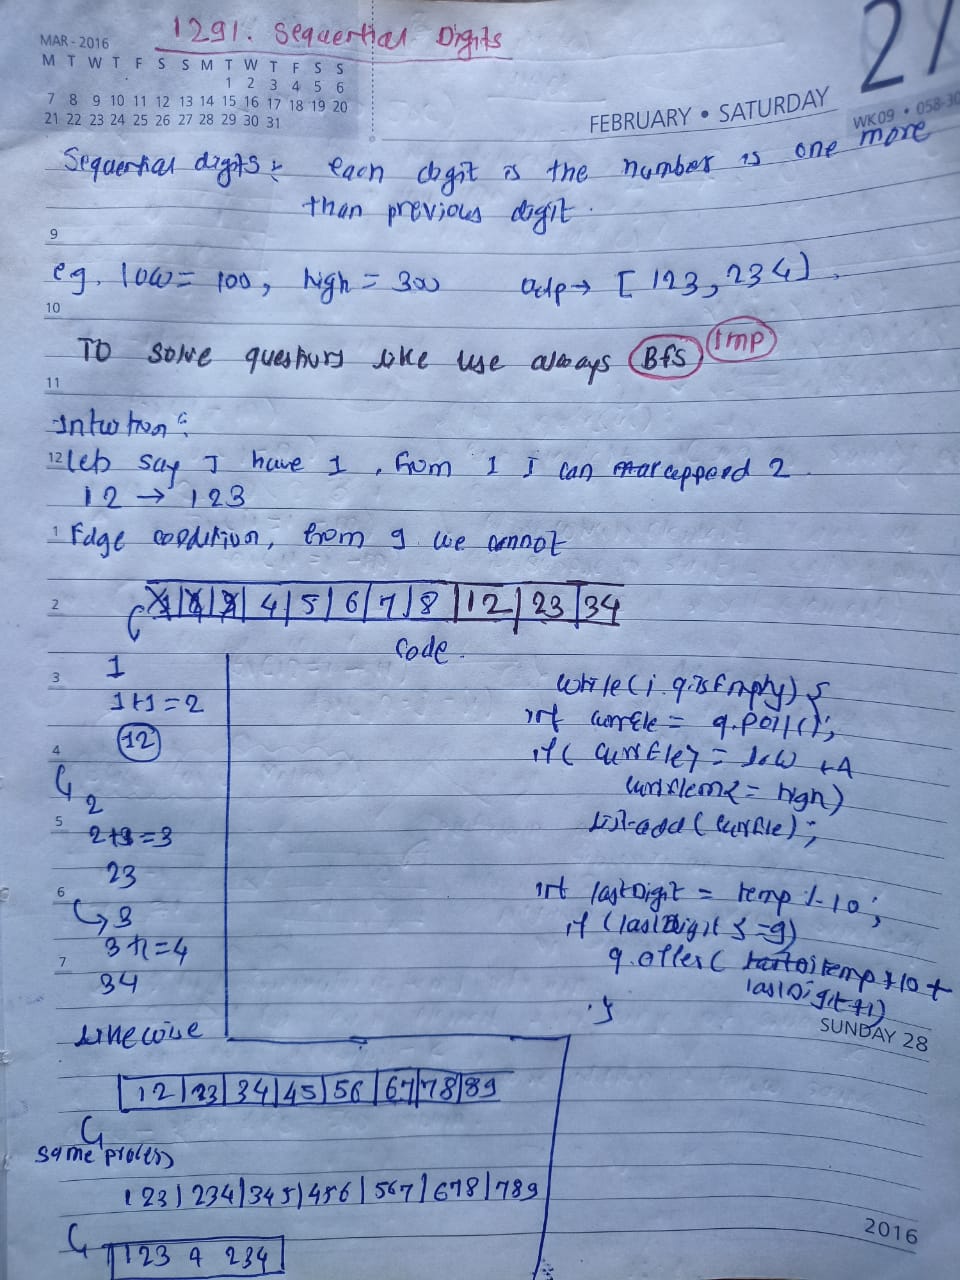 1291. Sequential Digits
MAR - 2016
M T W T F S S M T W T F S S
1 2 3 4 5 6
7 8 9 10 11 12 13 14 15 16 17 18 19 20
21 22 23 24 25 26 27 28 29 30 31
27
FEBRUARY • SATURDAY
WK09 • 058-30
Sequential digits : each digit is the number is one more
than previous digit.
9
eg. low = 100, high = 300 o/p → [123, 234].
10
To solve questions like use always Bfs Imp
11
Intuition :
12 lets say I have 1, from 1 I can append 2.
12 → 123
1 Edge condition, from 9 we cannot
2 1 | 2 | 3 | 4 | 5 | 6 | 7 | 8 | 12 | 23 | 34
Code.
3 1
1+1=2
12
4
2
5 2+1=3
23
6 3
3+1=4
7 34
likewise
while(!q.isEmpty) {
int currEle = q.poll();
if( currEle >= low &&
currElem <= high)
list.add(currEle);
int lastDigit = temp % 10;
if (lastDigit <=9)
q.offer( temp*10 +
lastDigit+1)
}
SUNDAY 28
12 | 23 | 34 | 45 | 56 | 67 | 78 | 89
same process
123 | 234 | 345 | 456 | 567 | 678 | 789
123 9 234
2016